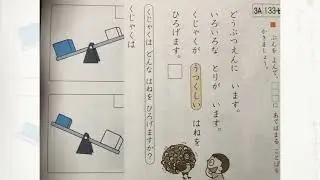 3A 133
ぶんを よんで、□に あてはまる ことばを
かきましょう。
どうぶつえんに います。
いろいろな とりが います。
くじゃくが うつくしい はねを
ひろげます。
くじゃくは どんな はねを ひろげますか?
くじゃくは